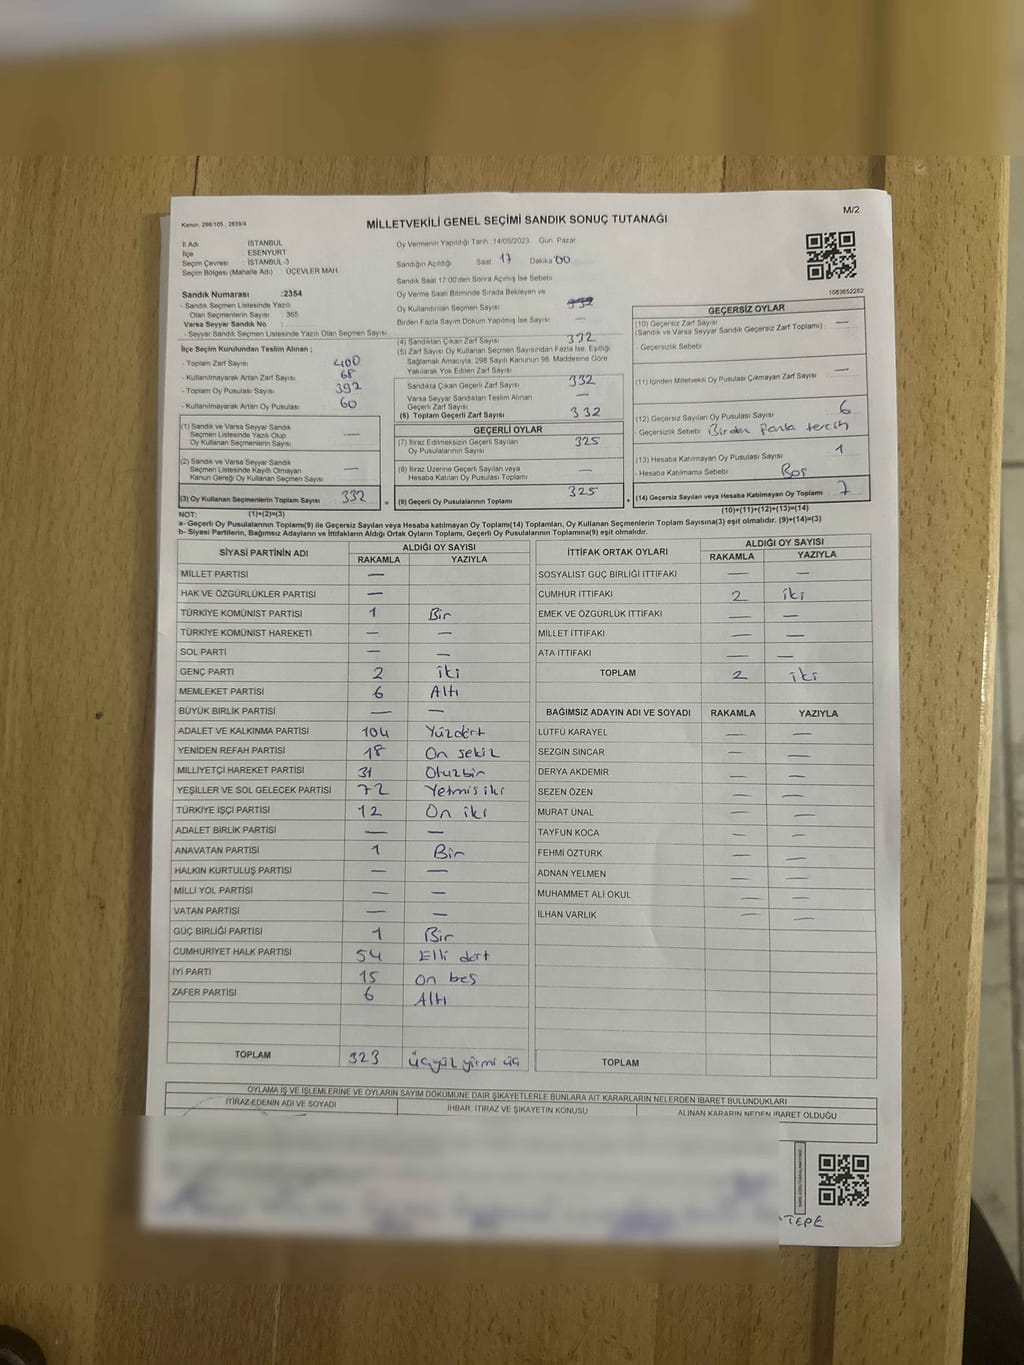 M/2
Kanun: 298/105 ; 2839/4
MİLLETVEKİLİ GENEL SEÇİMİ SANDIK SONUÇ TUTANAĞI
İl Adı : İSTANBUL
İlçe : ESENYURT
Seçim Çevresi : İSTANBUL-3
Seçim Bölgesi (Mahalle Adı) : ÜÇEVLER MAH.
Sandık Numarası :2354
- Sandık Seçmen Listesinde Yazılı
Olan Seçmenlerin Sayısı : 365
Varsa Seyyar Sandık No :
- Seyyar Sandık Seçmen Listesinde Yazılı Olan Seçmen Sayısı
İlçe Seçim Kurulundan Teslim Alınan ;
- Toplam Zarf Sayısı 400
- Kullanılmayarak Artan Zarf Sayısı 68
- Toplam Oy Pusulası Sayısı 392
- Kullanılmayarak Artan Oy Pusulası 60
(1) Sandık ve Varsa Seyyar Sandık
Seçmen Listesinde Yazılı Olup
Oy Kullanan Seçmenlerin Sayısı —
(2) Sandık ve Varsa Seyyar Sandık
Seçmen Listesinde Kaydı Olmayan
Kanun Gereği Oy Kullanan Seçmen Sayısı —
(3) Oy Kullanan Seçmenlerin Toplam Sayısı 332 =
Oy Vermenin Yapıldığı Tarih :14/05/2023 Gün :Pazar
Sandığın Açıldığı Saat 17 Dakika 00
Sandık Saat 17:00'den Sonra Açılmış İse Sebebi
Oy Verme Saati Bitiminde Sırada Bekleyen ve
Oy Kullandırılan Seçmen Sayısı
Birden Fazla Sayım Döküm Yapılmış İse Sayısı —
(4) Sandıktan Çıkan Zarf Sayısı 332
(5) Zarf Sayısı Oy Kullanan Seçmen Sayısından Fazla İse, Eşitliği
Sağlamak Amacıyla, 298 Sayılı Kanunun 98. Maddesine Göre
Yakılarak Yok Edilen Zarf Sayısı
Sandıkta Çıkan Geçerli Zarf Sayısı 332
Varsa Seyyar Sandıktan Teslim Alınan
Geçerli Zarf Sayısı —
(6) Toplam Geçerli Zarf Sayısı 332
GEÇERLİ OYLAR
(7) İtiraz Edilmeksizin Geçerli Sayılan
Oy Pusulasının Sayısı 325
(8) İtiraz Üzerine Geçerli Sayılan veya
Hesaba Katılan Oy Pusulası Toplamı —
(9) Geçerli Oy Pusulalarının Toplamı 325 +
1083652282
GEÇERSİZ OYLAR
(10) Geçersiz Zarf Sayısı
(Sandık ve Varsa Seyyar Sandık Geçersiz Zarf Toplamı) —
- Geçersizlik Sebebi
(11) İçinden Milletvekili Oy Pusulası Çıkmayan Zarf Sayısı —
(12) Geçersiz Sayılan Oy Pusulası Sayısı 6
- Geçersizlik Sebebi Birden fazla tercih
(13) Hesaba Katılmayan Oy Pusulası Sayısı 1
- Hesaba Katılmama Sebebi Boş
(14) Geçersiz Sayılan veya Hesaba Katılmayan Oy Toplamı 7
NOT: (1)+(2)=(3) (10)+(11)+(12)+(13)=(14)
a- Geçerli Oy Pusulalarının Toplamı(9) ile Geçersiz Sayılan veya Hesaba katılmayan Oy Toplamı(14) Toplamları, Oy Kullanan Seçmenlerin Toplam Sayısına(3) eşit olmalıdır. (9)+(14)=(3)
b- Siyasi Partilerin, Bağımsız Adayların ve İttifakların Aldığı Ortak Oyların Toplamı, Geçerli Oy Pusulalarının Toplamına(9) eşit olmalıdır.
SİYASİ PARTİNİN ADI ALDIĞI OY SAYISI
RAKAMLA YAZIYLA
MİLLET PARTİSİ —
HAK VE ÖZGÜRLÜKLER PARTİSİ —
TÜRKİYE KOMÜNİST PARTİSİ 1 Bir
TÜRKİYE KOMÜNİST HAREKETİ — —
SOL PARTİ — —
GENÇ PARTİ 2 iki
MEMLEKET PARTİSİ 6 Altı
BÜYÜK BİRLİK PARTİSİ — —
ADALET VE KALKINMA PARTİSİ 104 Yüzdört
YENİDEN REFAH PARTİSİ 18 On sekiz
MİLLİYETÇİ HAREKET PARTİSİ 31 Otuzbir
YEŞİLLER VE SOL GELECEK PARTİSİ 72 Yetmiş iki
TÜRKİYE İŞÇİ PARTİSİ 12 On iki
ADALET BİRLİK PARTİSİ — —
ANAVATAN PARTİSİ 1 Bir
HALKIN KURTULUŞ PARTİSİ — —
MİLLİ YOL PARTİSİ — —
VATAN PARTİSİ — —
GÜÇ BİRLİĞİ PARTİSİ 1 Bir
CUMHURİYET HALK PARTİSİ 54 Elli dört
İYİ PARTİ 15 on beş
ZAFER PARTİSİ 6 Altı
TOPLAM 323 üçyüz yirmi üç
İTTİFAK ORTAK OYLARI ALDIĞI OY SAYISI
RAKAMLA YAZIYLA
SOSYALİST GÜÇ BİRLİĞİ İTTİFAKI — —
CUMHUR İTTİFAKI 2 iki
EMEK VE ÖZGÜRLÜK İTTİFAKI — —
MİLLET İTTİFAKI — —
ATA İTTİFAKI — —
TOPLAM 2 iki
BAĞIMSIZ ADAYIN ADI VE SOYADI RAKAMLA YAZIYLA
LÜTFÜ KARAYEL — —
SEZGİN SİNCAR — —
DERYA AKDEMİR — —
SEZEN ÖZEN — —
MURAT ÜNAL — —
TAYFUN KOCA — —
FEHMİ ÖZTÜRK — —
ADNAN YELMEN — —
MUHAMMET ALİ OKUL — —
İLHAN VARLIK — —
TOPLAM
OYLAMA İŞ VE İŞLEMLERİNE VE OYLARIN SAYIM DÖKÜMÜNE DAİR ŞİKAYETLERLE BUNLARA AİT KARARLARIN NELERDEN İBARET BULUNDUKLARI
İTİRAZ EDENİN ADI VE SOYADI İHBAR, İTİRAZ VE ŞİKAYETİN KONUSU ALINAN KARARIN NEDEN İBARET OLDUĞU
TEPE